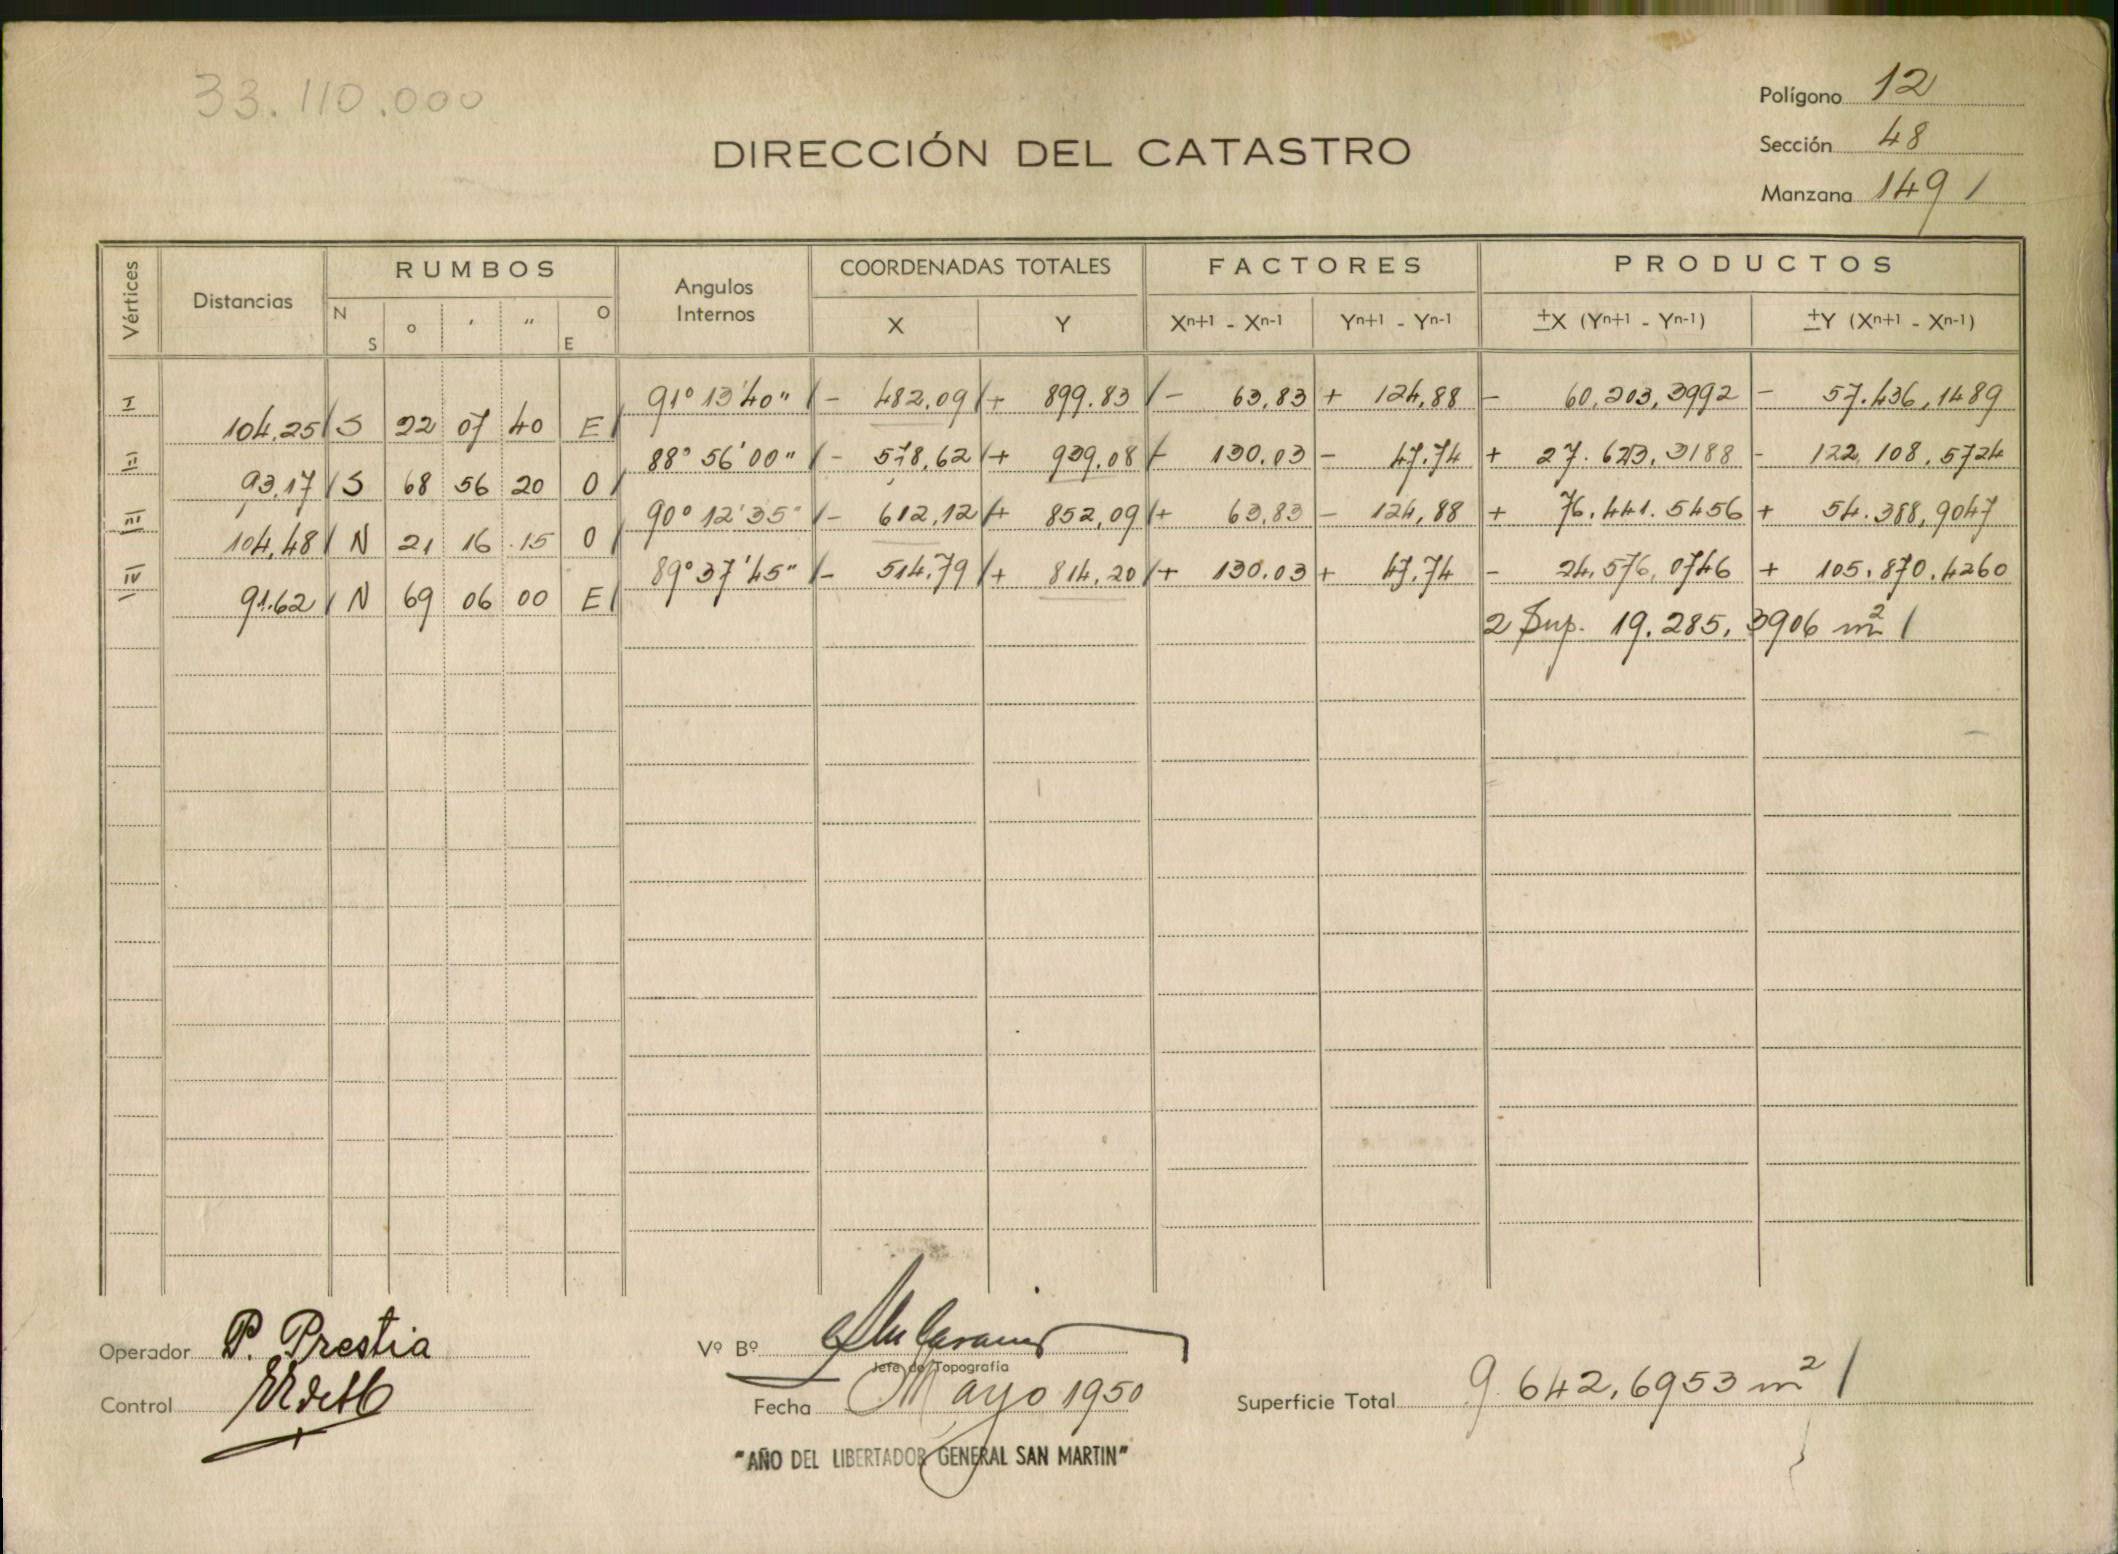 33.110.000
Polígono 12
Sección 48
Manzana 149
DIRECCIÓN DEL CATASTRO
Vértices Distancias RUMBOS Angulos Internos COORDENADAS TOTALES FACTORES PRODUCTOS
N S ° ' " O E X Y Xn+1 - Xn-1 Yn+1 - Yn-1 ±X (Yn+1 - Yn-1) ±Y (Xn+1 - Xn-1)
I 91° 13' 40" - 482,09 + 899.83 - 63,83 + 124,88 - 60,203,3992 - 57.436,1489
104,25 S 22 07 40 E
II 88° 56' 00" - 578,62 + 939.08 - 130.03 - 47.74 + 27.623,3188 - 122,108,5724
93,17 S 68 56 20 O
III 90° 12' 35" - 612,12 + 852,09 + 63,83 - 124,88 + 76.441.5456 + 54.388,9047
104,48 N 21 16 15 O
IV 89° 37' 45" - 514.79 + 814,20 + 130.03 + 47,74 - 24,576,0746 + 105.870.4260
91.62 N 69 06 00 E
2 Sup. 19.285,3906 m²
Operador P. Prestia
Vº Bº
Jefe de Topografía
Control
Fecha Mayo 1950
Superficie Total 9.642,6953 m²
"AÑO DEL LIBERTADOR GENERAL SAN MARTIN"